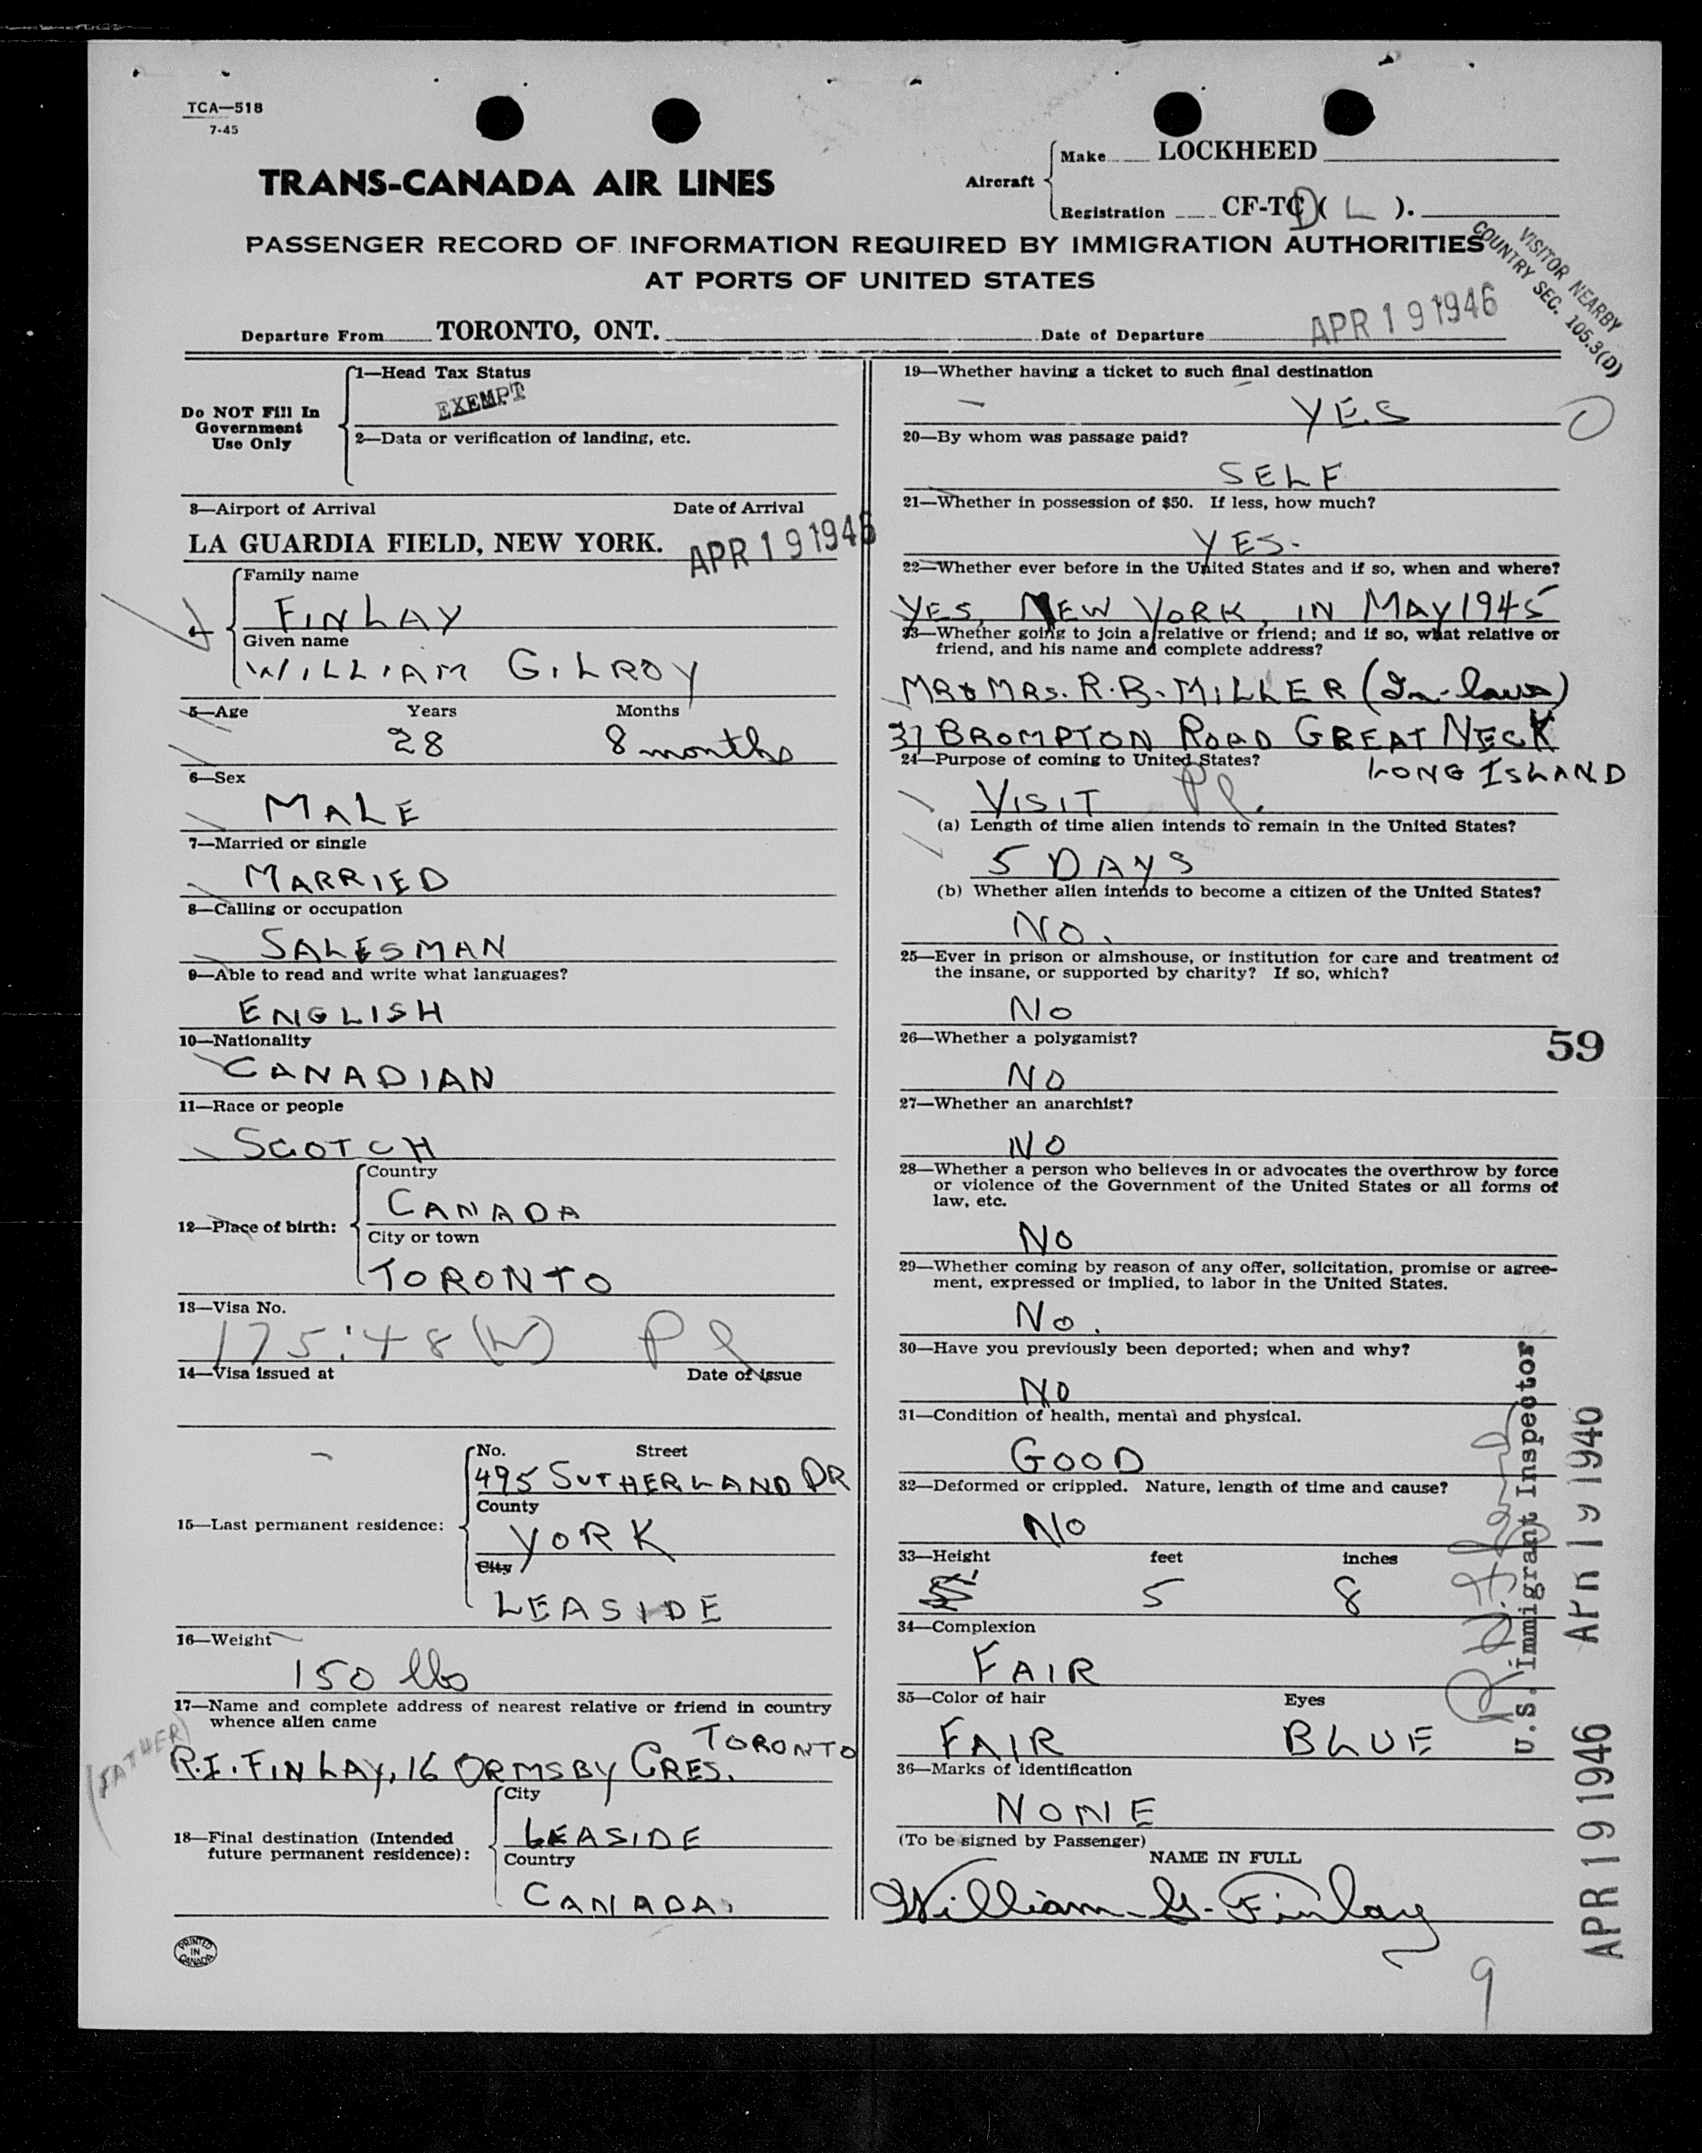 TCA—518
7-45
TRANS-CANADA AIR LINES
Aircraft
Make LOCKHEED
Registration CF-TCD ( L ).
PASSENGER RECORD OF INFORMATION REQUIRED BY IMMIGRATION AUTHORITIES
AT PORTS OF UNITED STATES
VISITOR NEARBY
COUNTRY SEC. 105.3(D)
Departure From TORONTO, ONT. Date of Departure APR 19 1946
Do NOT Fill In
Government
Use Only
1—Head Tax Status
EXEMPT
2—Data or verification of landing, etc.
3—Airport of Arrival Date of Arrival
LA GUARDIA FIELD, NEW YORK. APR 19 1946
4
Family name
FINLAY
Given name
WILLIAM GILROY
5—Age Years Months
28 8 months
6—Sex
MALE
7—Married or single
MARRIED
8—Calling or occupation
SALESMAN
9—Able to read and write what languages?
ENGLISH
10—Nationality
CANADIAN
11—Race or people
SCOTCH
12—Place of birth:
Country
CANADA
City or town
TORONTO
13—Visa No.
175:48(W) Pl
14—Visa issued at Date of issue
15—Last permanent residence:
No. Street
495 SUTHERLAND DR
County
YORK
City
LEASIDE
16—Weight
150 lbs
17—Name and complete address of nearest relative or friend in country
whence alien came
(FATHER)
R.I. FINLAY, 16 ORMSBY CRES. TORONTO
18—Final destination (Intended
future permanent residence):
City
LEASIDE
Country
CANADA.
PRINTED
IN
CANADA
19—Whether having a ticket to such final destination
YES
20—By whom was passage paid?
SELF
21—Whether in possession of $50. If less, how much?
YES.
22—Whether ever before in the United States and if so, when and where?
YES, NEW YORK, IN MAY 1945
23—Whether going to join a relative or friend; and if so, what relative or
friend, and his name and complete address?
MR & MRS. R.B. MILLER (In-laws)
37 BROMPTON ROAD GREAT NECK
LONG ISLAND
24—Purpose of coming to United States?
VISIT Pl.
(a) Length of time alien intends to remain in the United States?
5 DAYS
(b) Whether alien intends to become a citizen of the United States?
NO.
25—Ever in prison or almshouse, or institution for care and treatment of
the insane, or supported by charity? If so, which?
NO
26—Whether a polygamist?
NO
59
27—Whether an anarchist?
NO
28—Whether a person who believes in or advocates the overthrow by force
or violence of the Government of the United States or all forms of
law, etc.
NO
29—Whether coming by reason of any offer, solicitation, promise or agree-
ment, expressed or implied, to labor in the United States.
NO.
30—Have you previously been deported; when and why?
NO
31—Condition of health, mental and physical.
GOOD
32—Deformed or crippled. Nature, length of time and cause?
NO
33—Height feet inches
5 8
34—Complexion
FAIR
35—Color of hair Eyes
FAIR BLUE
36—Marks of identification
NONE
(To be signed by Passenger)
NAME IN FULL
William G. Finlay
U.S. Immigrant Inspector
APR 19 1946
APR 19 1946
9